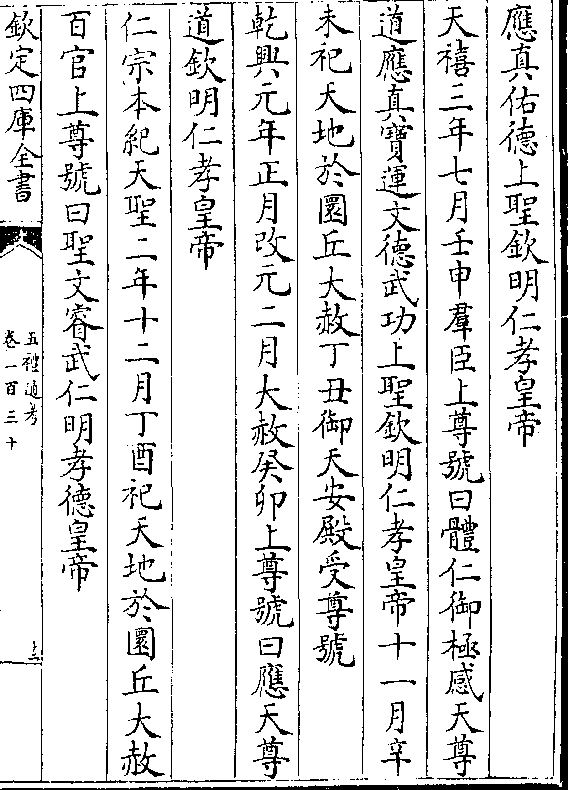 應真佑德上聖欽明仁孝皇帝
天禧三年七月壬申羣臣上尊號曰體仁御極感天尊
道應真寶運文德武功上聖欽明仁孝皇帝十一月辛
未祀天地於圜丘大赦丁丑御天安殿受尊號
乾興元年正月改元二月大赦癸卯上尊號曰應天尊
道欽明仁孝皇帝
仁宗本紀天聖二年十二月丁酉祀天地於圜丘大赦
百官上尊號曰聖文睿武仁明孝德皇帝
欽定四庫全書
五禮通考
卷一百三十